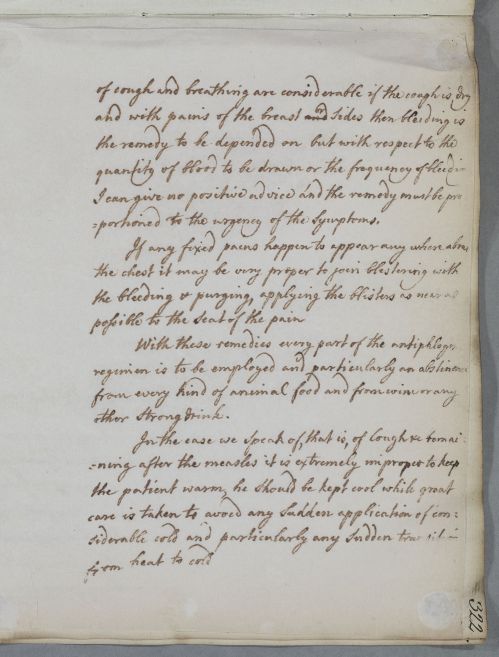 of cough and breathing are considerable if the cough is dry
and with pains of the breast or sides then bleeding is
the remedy to be depended on but with respect to the
quantity of blood to be drawn or the frequency of bleedin
I can give no positive advice and the remedy must be pro
=portioned to the urgency of the symptoms.
If any fixed pains happen to appear any where abou
the chest it may be very proper to join blestering with
the bleeding & purging, applying the blisters as near as
possible to the seat of the pain
With these remedies every part of the antiphlogis
regimen is to be employed and particularly an abstinence
from every kind of animal food and from wine or any
other strong drink.
In the case we speak of, that is, of Cough &c remai-
=ning after the measles it is extremely improper to keep
the patient warm, he should be kept cool while great
care is taken to avoid any sudden application of con=
siderable cold and particularly any sudden transition
from heat to cold
322.